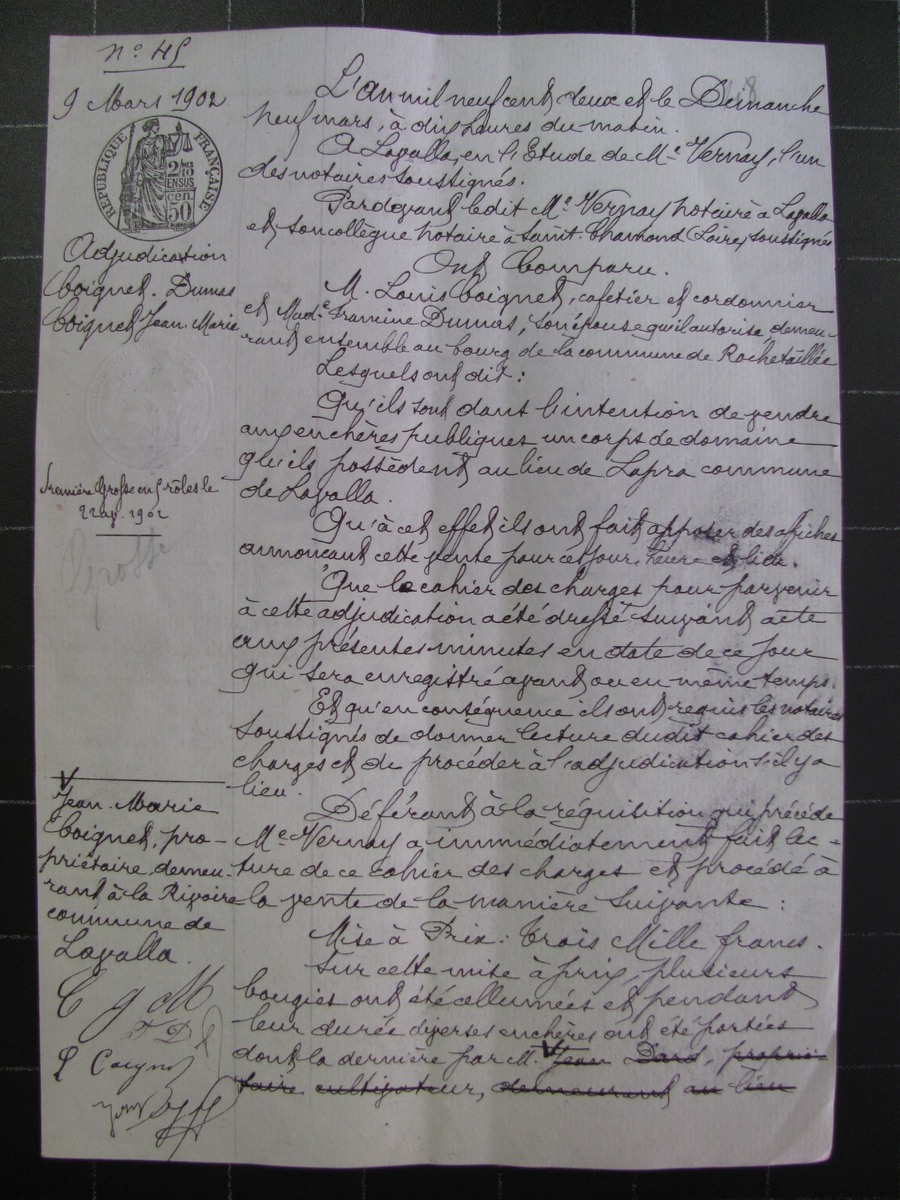 n° 45
9 Mars 1902
RÉPUBLIQUE FRANÇAISE
2/10 EN SUS
50 cen.
Adjudication
Coignet. Dumas
Coignet Jean Marie
Première Grosse en rôles le
22 ap. 1902
Grosse
L'an mil neuf cent deux et le Dimanche
neuf mars, à dix heures du matin.
A Lavalla, en l'Etude de Me Vernay, l'un
des notaires soussignés.
Pardevant ledit Me Vernay notaire à Lavalla
et son collègue notaire à Saint-Chamond (Loire) soussignés
Ont Comparu.
M. Louis Coignet, cafetier et cordonnier
et Made Francine Dumas, son épouse qu'il autorise, demeu-
rant ensemble au bourg de la commune de Rochetaillée
Lesquels ont dit :
Qu'ils sont dans l'intention de vendre
aux enchères publiques un corps de domaine
qu'ils possèdent au lieu de Lapra commune
de Lavalla.
Qu'à cet effet ils ont fait apposer des affiches
annoncant cette vente pour ce jour, heure et lieu.
Que le cahier des charges pour parvenir
à cette adjudication a été dressé suivant acte
aux présentes minutes en date de ce jour
qui sera enregistré avant ou en même temps.
Et qu'en conséquence ils ont requis les notaires
soussignés de donner lecture dudit cahier des
charges et de procéder à l'adjudication s'il y a
lieu.
Déférant à la réquisition qui précède
Me Vernay a immédiatement fait lec-
ture de ce cahier des charges et procédé à
la vente de la manière suivante :
Mise à Prix : Trois Mille francs.
Sur cette mise à prix, plusieurs
bougies ont été allumées et pendant
leur durée diverses enchères ont été portées
dont la dernière par M. V Jean Dard, proprié-
taire cultivateur, demeurant au lieu
V
Jean-Marie
Coignet, pro-
priétaire, demeu-
rant à la Rivoire
commune de
Lavalla.
C J M
F D
L Coignet